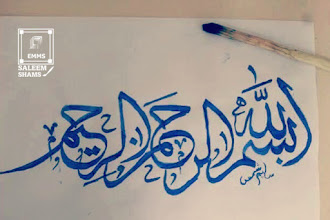 EMMS
SALEEM
SHAMS
بسم الله الرحمن الرحيم